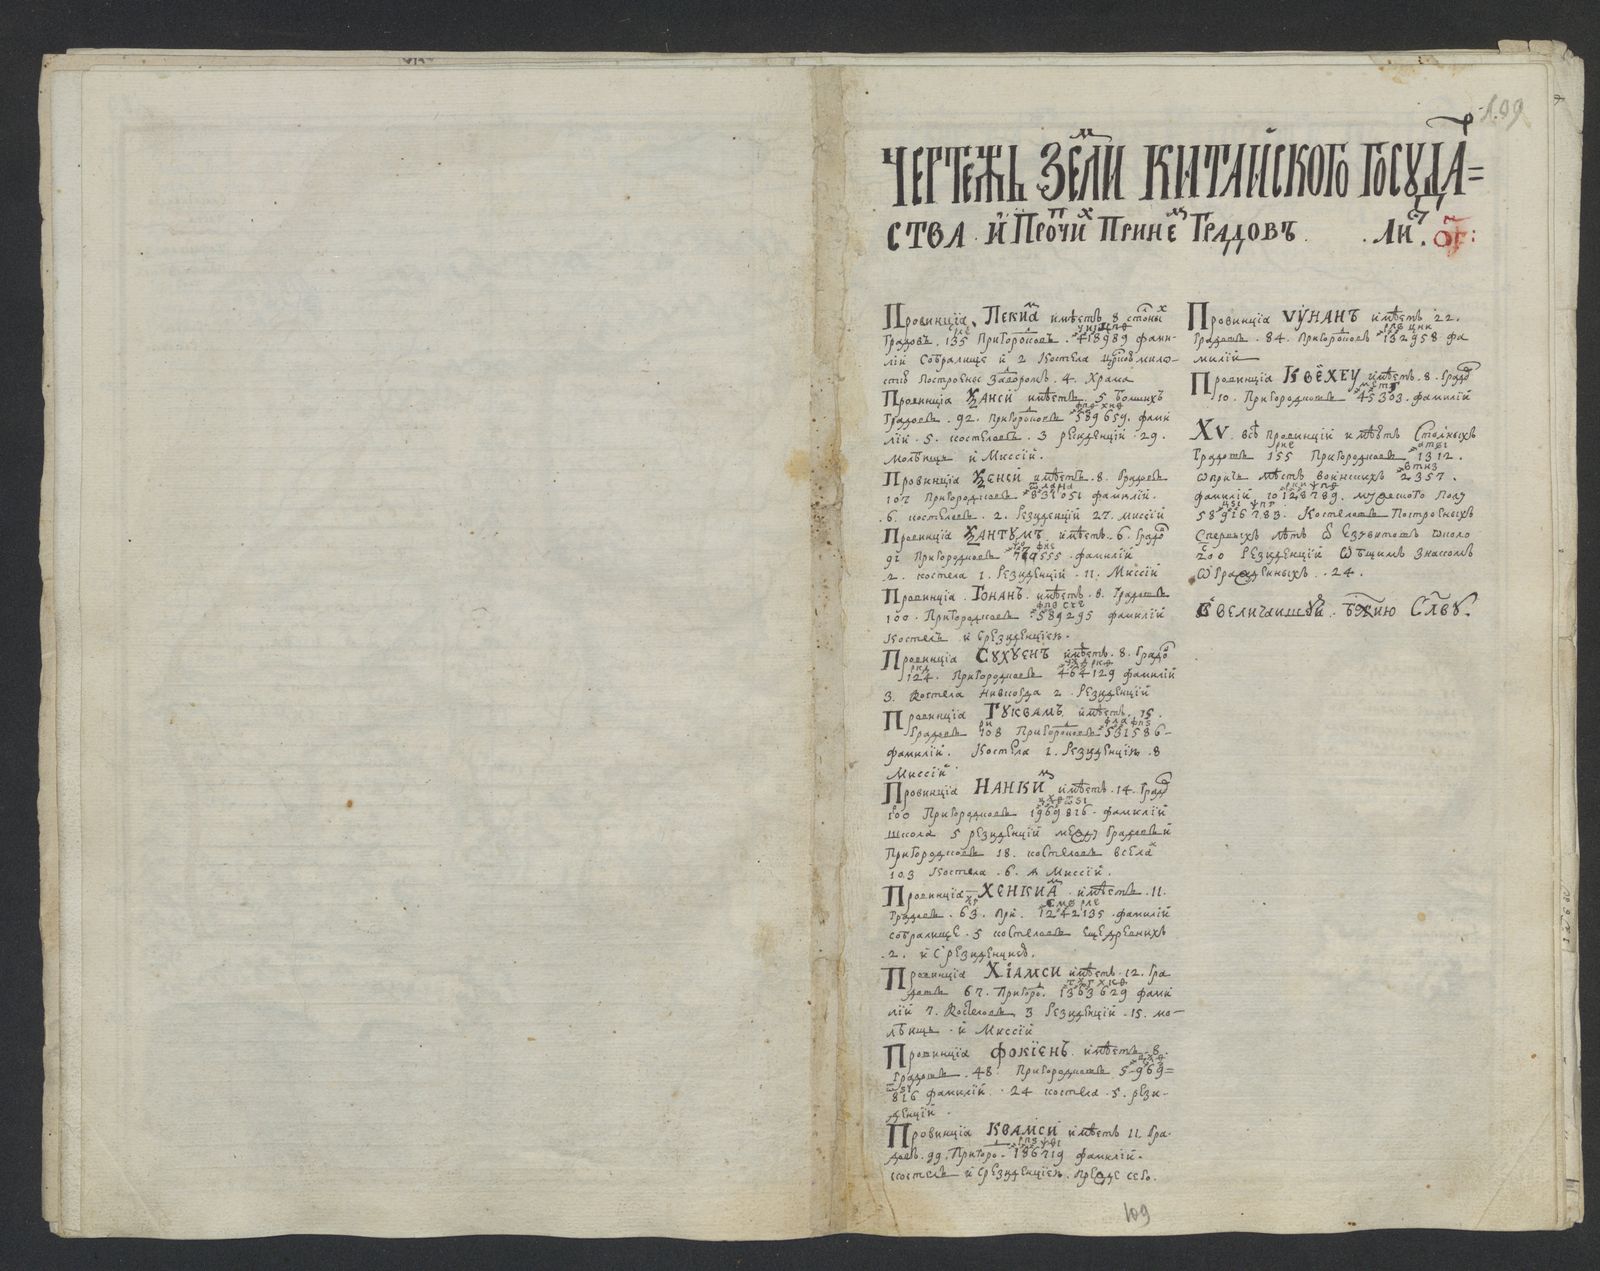 109
ЧЕРТЕЖЬ ЗЕМЛИ КИТАЙСКОГО ГОСУДАР=
СТВА И ПРОЧИХ ПРИНЕМ ГРАДОВЪ . Лис.
Провинцїа, ПЕКИМ имѣетъ 8 столных
Градовъ . 135 Пригородковъ . 418989 фами-
лїй Собралище й 2 Костела
Построены 4. Храма
Провинцїа ХАНСИ имѣетъ 5 болшихъ
Градовъ . 92. Пригородковъ 589659. фами
лїй . 5. костеловъ . 3 резиденцїй . 29.
Молбищъ й Миссїй .
Провинцїа ХЕНСИ имѣетъ . 8. Градовъ
107 Пригородковъ 831051 фамилїй .
. 6. костеловъ . 2. Резиденцїй 27. миссїй
Провинцїа ХАНТУМЪ имѣетъ . 6. Градов
91 Пригородковъ фамилїй
. 2. костела 1. Резиденцїй . 11. Миссїй
Провинцїа . ГОНАНЪ . имѣетъ . 8. Градовъ
100 . Пригородковъ 589295 фамилїй
Костелъ й Срезиденцїею .
Провинцїа СУХУЕНЪ имѣетъ . 8. Градов
124. Пригородковъ 464129 фамилїй
3. Костела 2. Резиденцїй
Провинцїа ГУКВАМЪ имѣетъ . 15.
Градовъ 108 Пригородковъ 531586-
фамилїй . Костела 1. Резиденцїя . 8
Миссїй
Провинцїа НАНКИМ имѣетъ . 14. Градов
100 Пригородковъ 1969816 . фамилїй
школа 5 резиденцїй между Градовъ й
Пригородковъ 18. костеловъ вселах
103 Костела . 6. Миссїй .
Провинцїа ХЕНКИАМ . имѣетъ . 11.
Градовъ . 63. При. 1242135 . фамилїй
собралище . 5 костеловъ
. 2. й Срезиденцїею.
Провинцїа ХІАМСИ имѣетъ . 12. Гра
довъ 67. Пригоро. 1363629 фами
лїй 7. Костеловъ 3 Резиденцїй . 15. мо-
лбищъ . й Миссїй
Провинцїа ФОКЇЕНЪ имѣетъ . 8.
Градовъ . 48. Пригородковъ 5969=
816 фамилїй . 24 костела . 5. рези-
денцїй .
Провинцїа КВАМСИ имѣетъ 11 Гра-
довъ. 99. Пригоро . 186719 фамилїй .
костелъ й Срезиденцїею . прежде сего .
Провинцїа УУНАНЪ имѣетъ 22.
Градовъ . 84. Пригородковъ 132958 фа
милїй
Провинцїа КВЕХЕУ имѣетъ . 8. Градов
10. Пригородковъ 45303. фамилїй
XV. всѣ провинцїй имѣютъ Столныхъ
Градовъ 155 Пригородковъ 1312.
опричь мѣстъ воинскихъ 2357.
фамилїй 10128789. мужеского полу
58916783. Костеловъ Построеныхъ
Спервыхъ лѣтъ Ѿ Езувитовъ около
200 Резиденцїй
Ограженныхъ . 24.
Ввеличаишую . Бжию Славу.
109